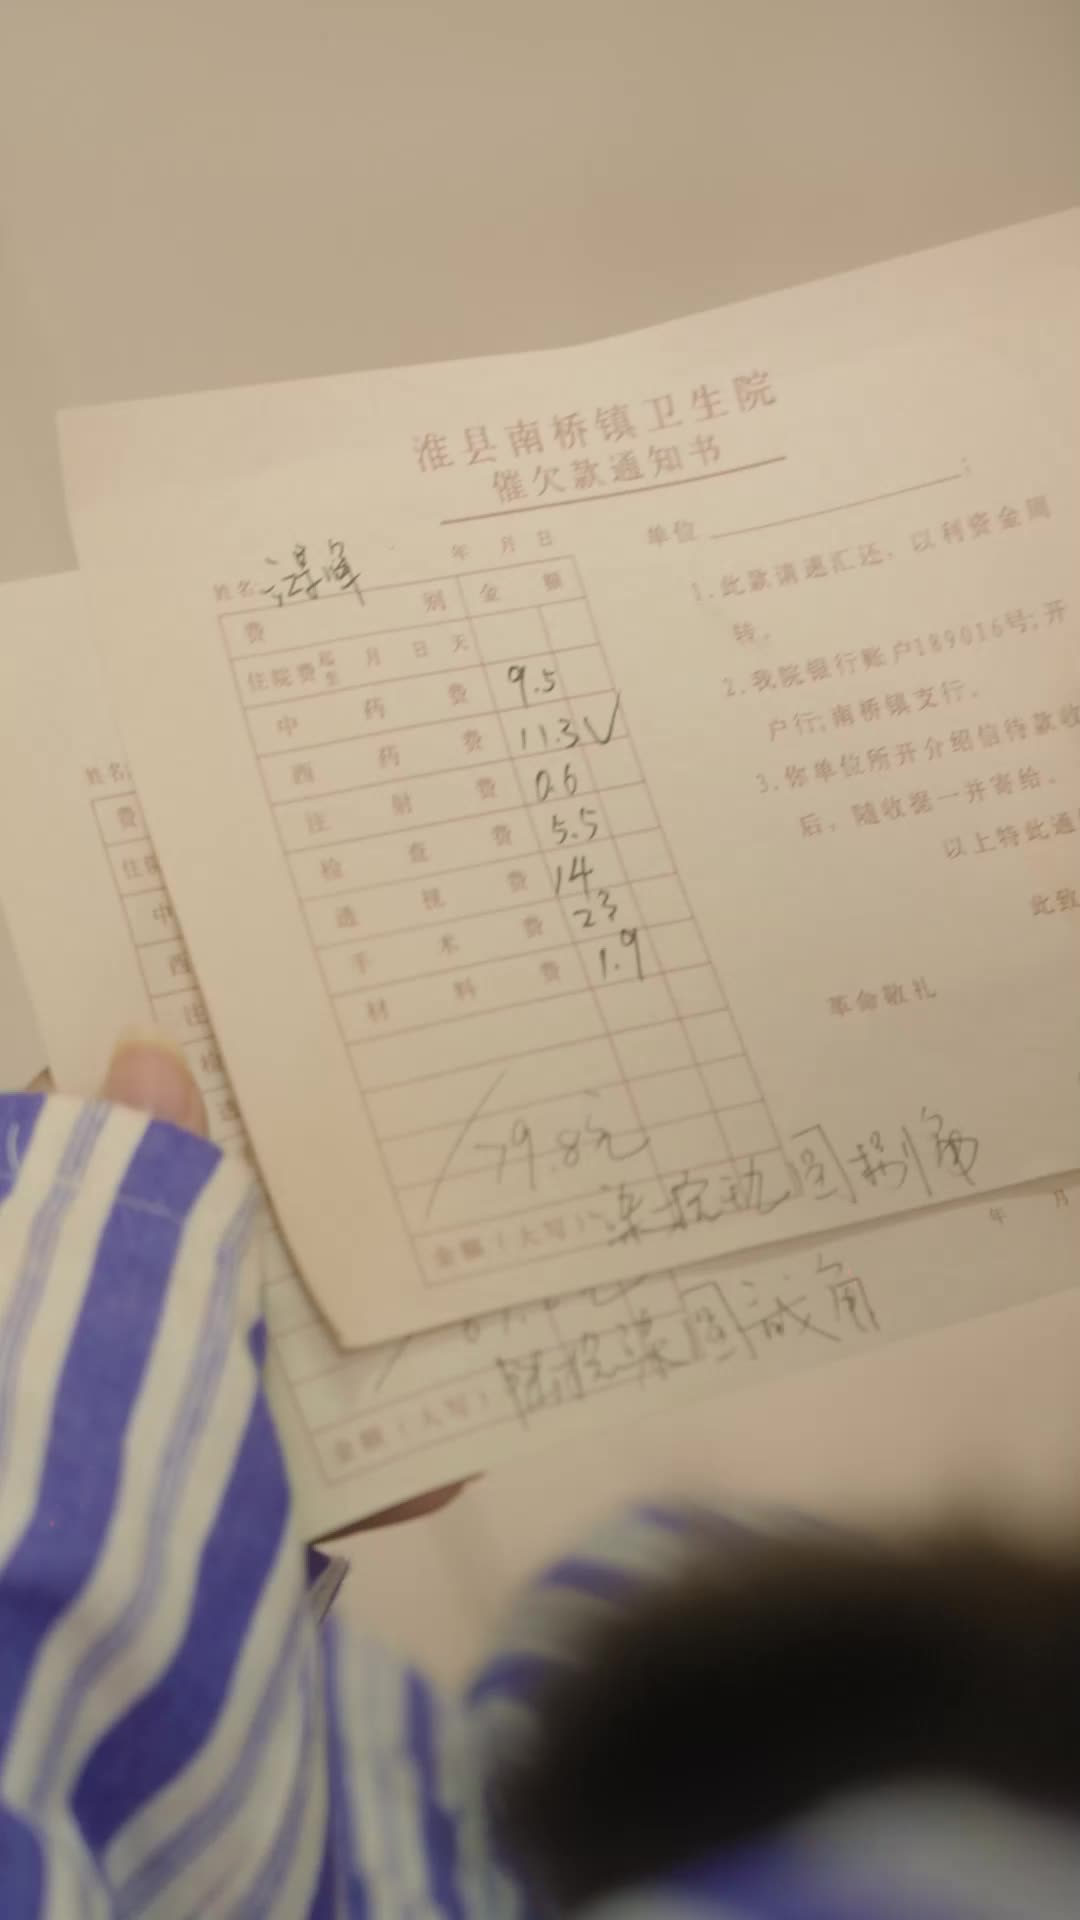 淮县南桥镇卫生院
催欠款通知书
年 月 日
单位
姓名
费 别 金 额
住院费 起 至 月 日 天
中 药 费 9.5
西 药 费 11.3√
注 射 费 0.6
检 查 费 5.5
透 视 费 14
手 术 费 23
材 料 费 1.9
79.8元
金额(大写) 柒拾玖圆捌角
1.此款请速汇还,以利资金周
转。
2.我院银行账户189016号;开
户行;南桥镇支行。
3.你单位所开介绍信待款收
后,随收据一并寄给。
以上特此通
此致
革命敬礼
姓名
费
住院
中
西
注
检
透
年 月
金额(大写) 陆拾柒圆贰角